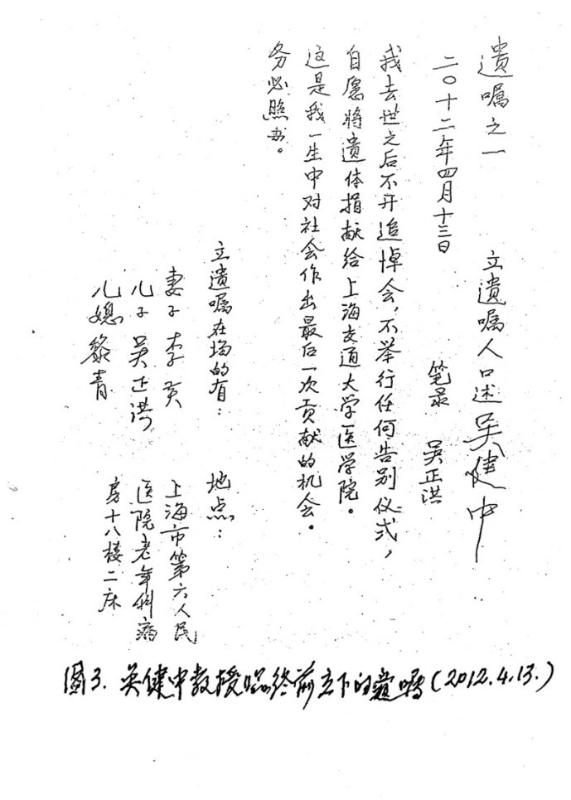 遗嘱之一
立遗嘱人口述 吴健中
二〇十二年四月十三日
笔录 吴正洪
我去世之后不开追悼会，不举行任何告别仪式，
自愿将遗体捐献给上海交通大学医学院。
这是我一生中对社会作出最后一次贡献的机会。
务必照办。
立遗嘱在场的有：
妻子 李
儿子 吴正洪
儿媳 黎青
地点：
上海市第六人民
医院老年科病
房十八楼二床
图3. 吴健中教授临终前立下的遗嘱(2012.4.13.)